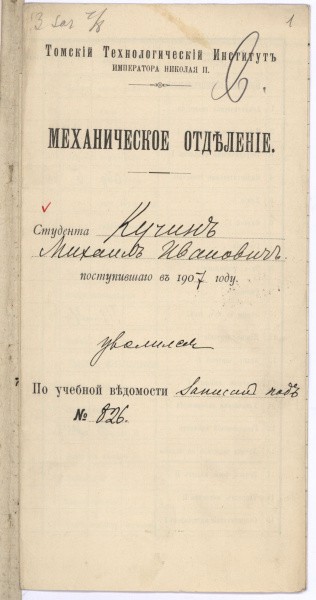 1
Томскій Технологическій Институтъ
ИМПЕРАТОРА НИКОЛАЯ II.
МЕХАНИЧЕСКОЕ ОТДѢЛЕНІЕ.
Студента Кучинъ
Михаилъ Ивановичъ
поступившаго въ 1907 году.
уволился
По учебной вѣдомости записанъ подъ
№ 826.